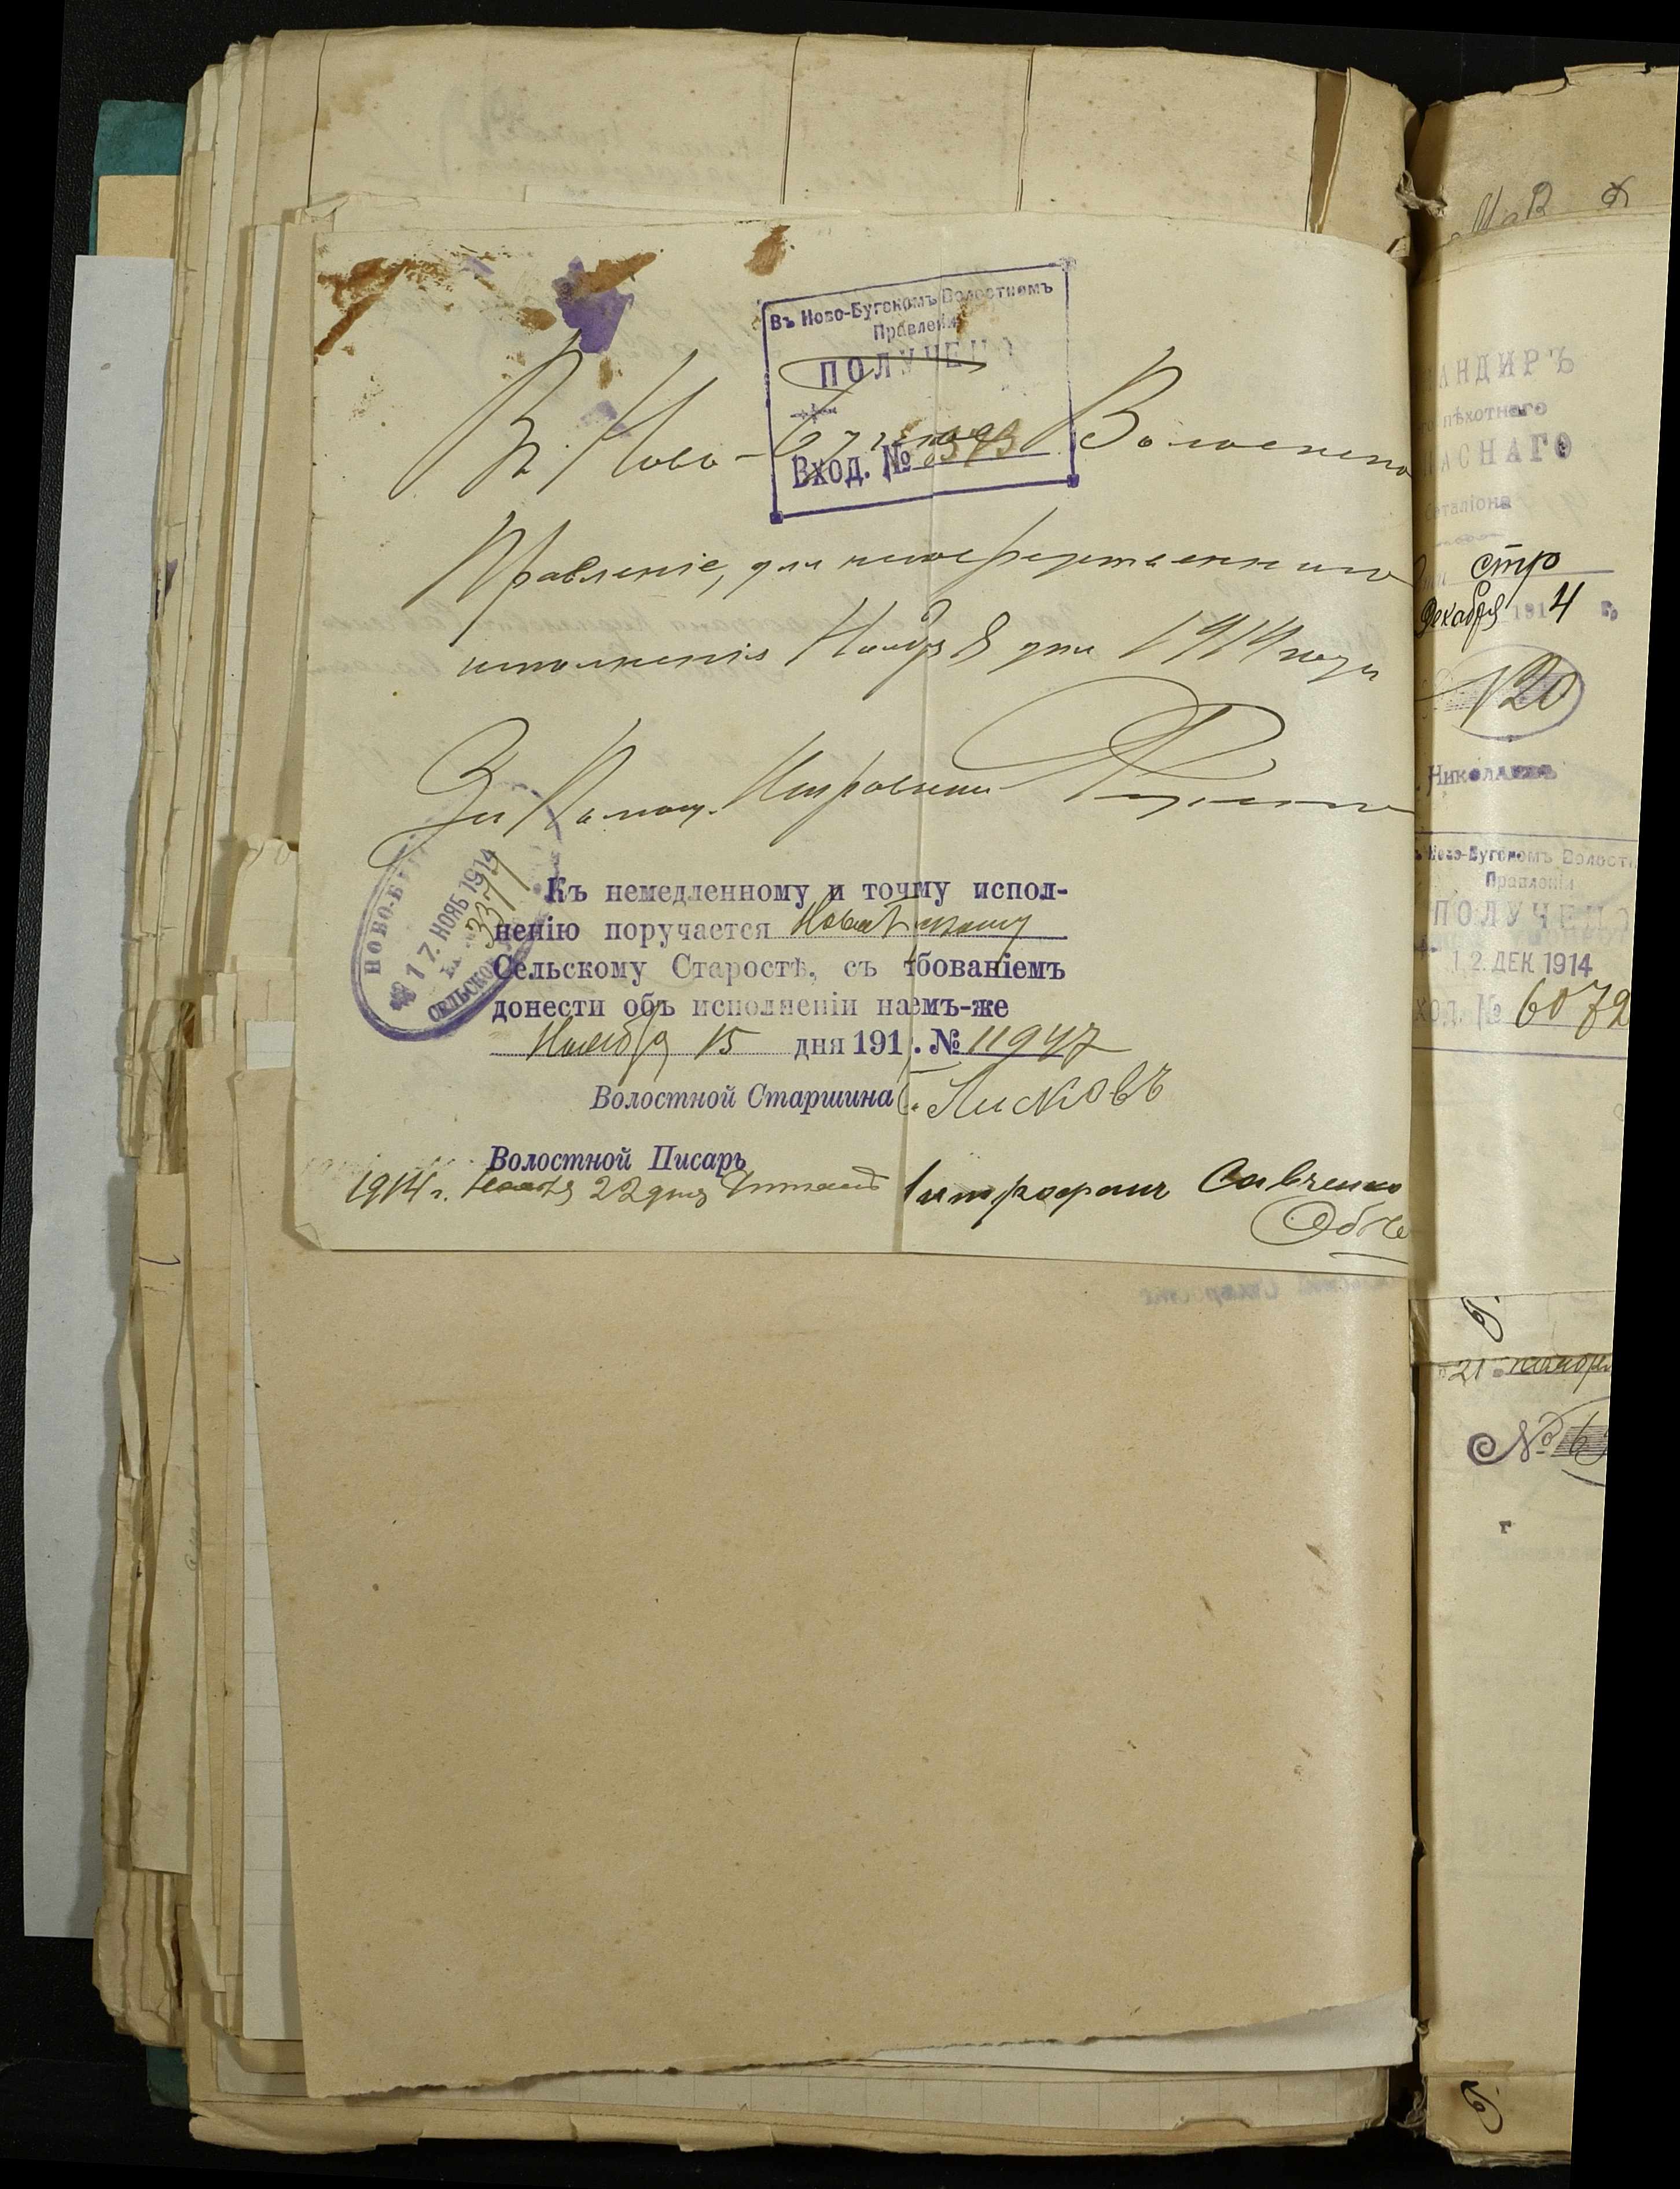 Въ Ново-Бугскомъ Волостномъ
Правленіи
ПОЛУЧЕНО
Вход. №
Въ Ново-Бугское Волостно
Правленіе, для непосредственнаго
исполненія Ноября 8 дня 1914 года
За Помощ. Исправника
НОВО-БУ
17. НОЯБ 1914
3371
СЕЛЬСКО
Къ немедленному и точму испол-
ненію поручается
Сельскому Старостѣ, съ тбованіемъ
донести объ исполненіи наемъ-же
Ноября 15 дня 191 . № 11947
Волостной Старшина Лисковъ
Волостной Писарь
1914 г. Ноября 22 дня Читалъ Митрофанъ Савченко
АНДИРЪ
пѣхотнаго
АСНАГО
аталіона
стр
Декабря 1914 г.
120
Николаевъ
Ново-Бугскомъ Волост
Правленіи
ПОЛУЧЕНО
12. ДЕК. 1914
ход. № 6072
21 ноябр
№ 6
г